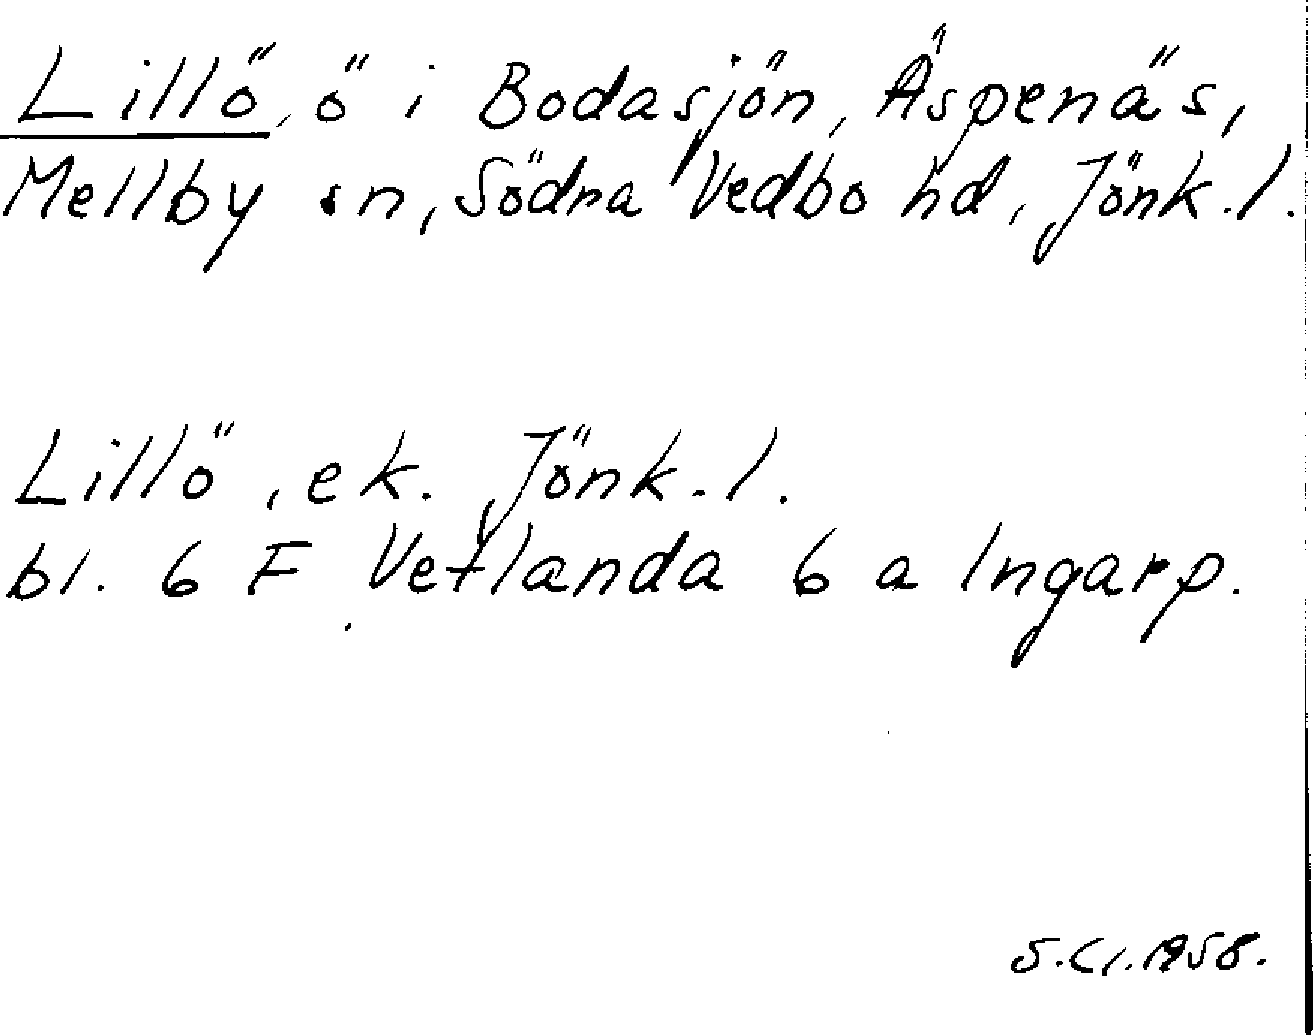 Lillö, ö i Bodasjön, Äspenäs,
Mellby sn, Södra Vedbo hd, Jönk. l.
Lillö, ek. Jönk. l.
bl. 6 F Vetlanda 6 a Ingarp.